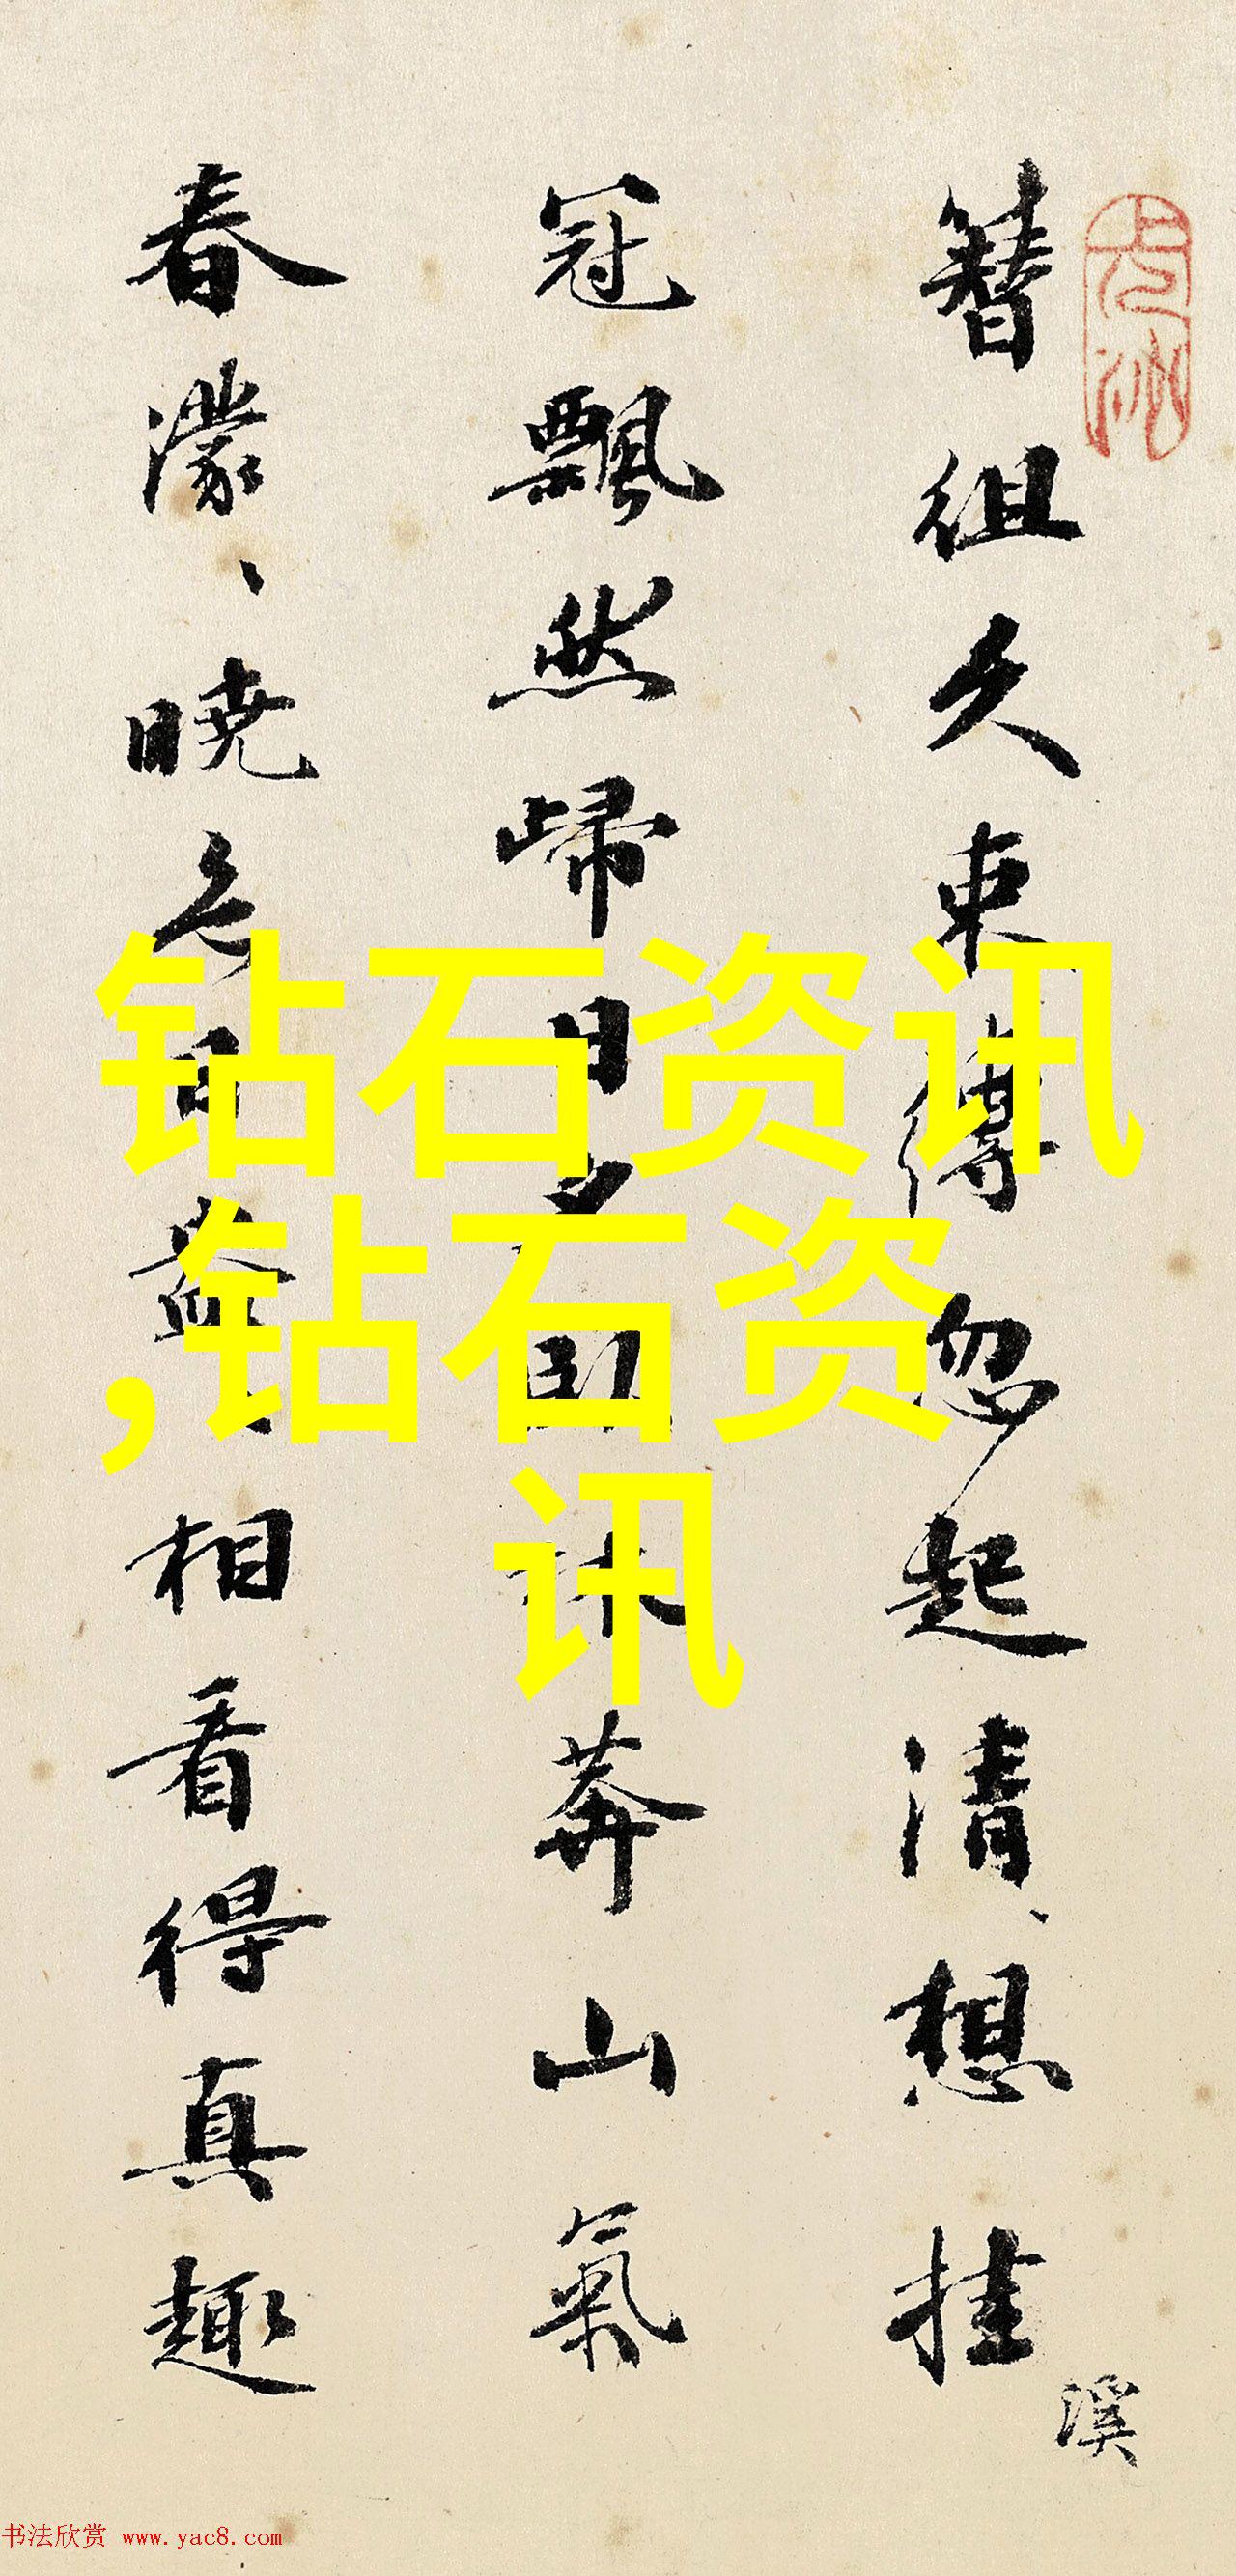 簪组久束缚忽起清、想挂
溪
冠飘然归日
莽山氣
春濛、晓色日益、相看得真趣
钻石资讯
,钻石资
讯
书法欣赏 www.yac8.com